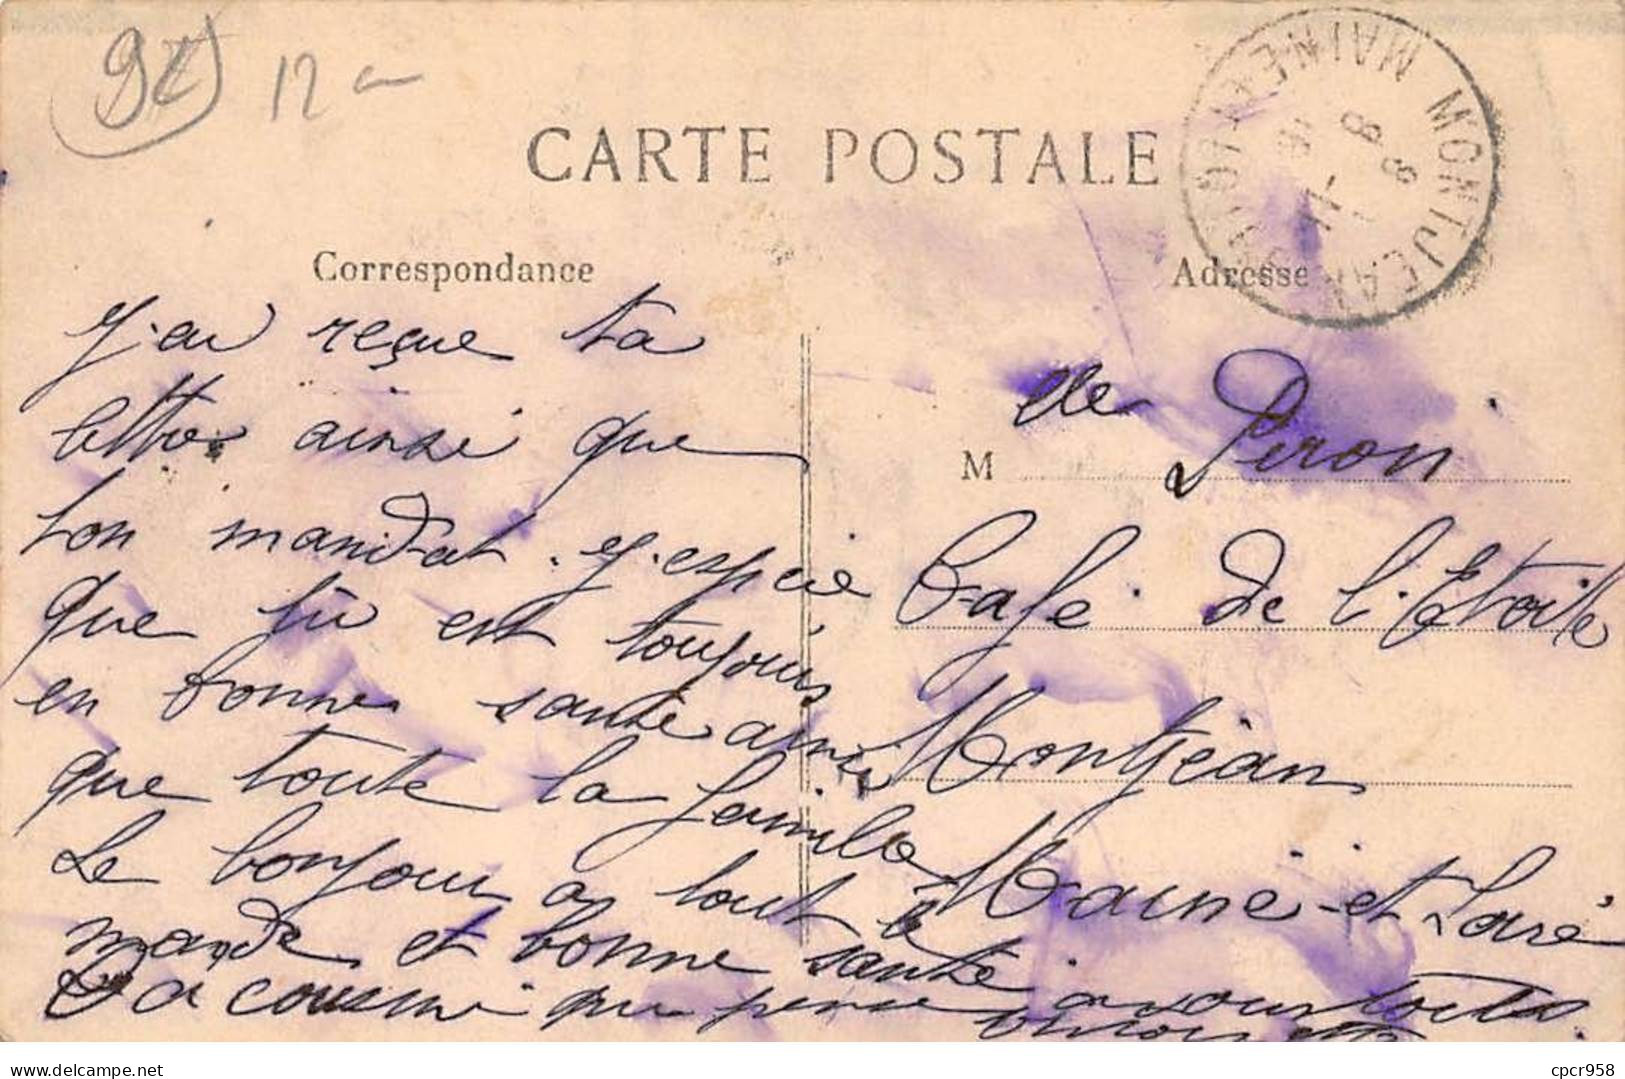 12
CARTE POSTALE
MONTJEAN MAINE-ET-LOIRE
Correspondance
Adresse
J.ai reçue ta
lettre ainsi que
ton mandat. J.espère
que tu est toujours
en bonne santé ainsi
que toute la famile
Le bonjour a tout le
monde et bonne santé a vous toutes
Ta cousine qui pense
M elle Peron
Café de l.Etoile
Montjean
Maine-et-Loire
delcampe.net
cpcr958